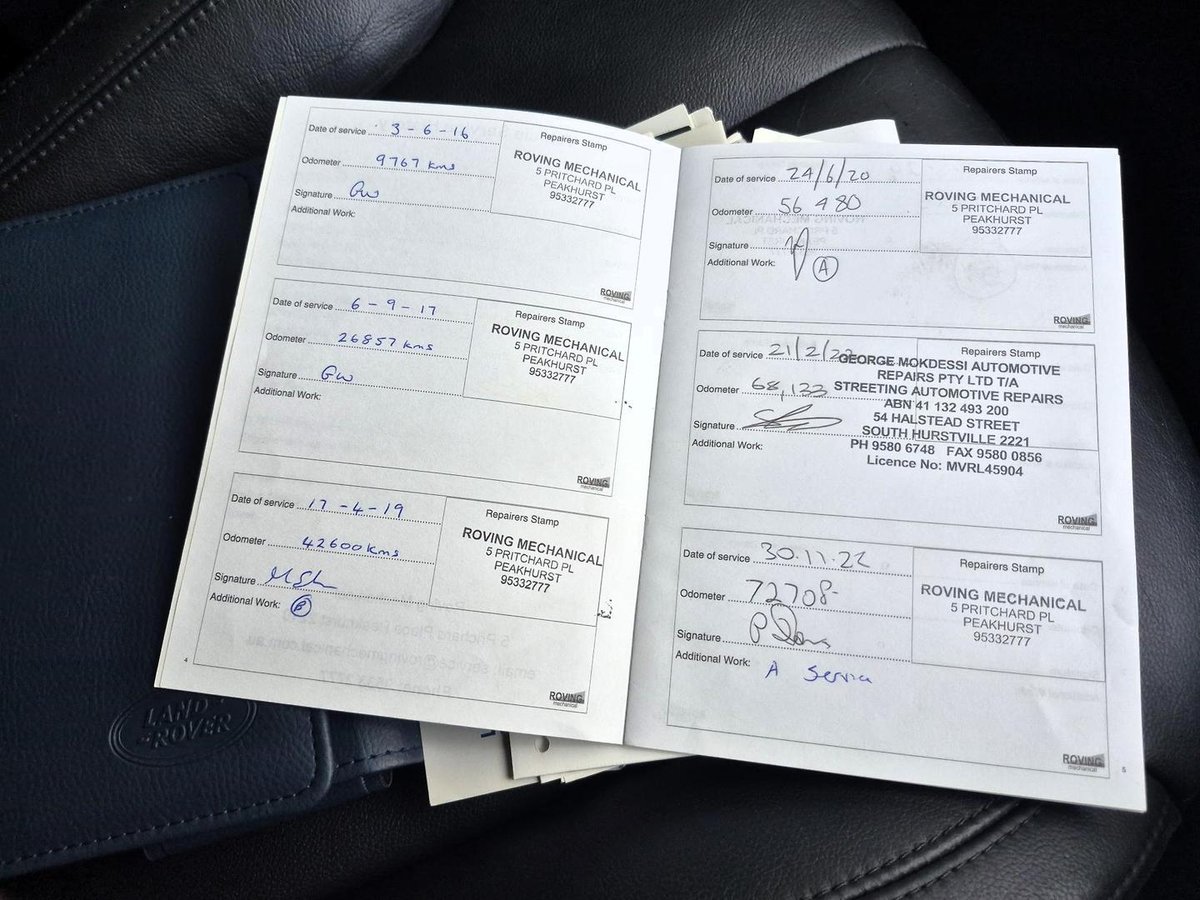 Date of service 3-6-16
Repairers Stamp
Odometer 9767 kms
ROVING MECHANICAL
5 PRITCHARD PL
PEAKHURST
95332777
Signature GW
Additional Work:
ROVING
mechanical
Date of service 6-9-17
Repairers Stamp
Odometer 26857 kms
ROVING MECHANICAL
5 PRITCHARD PL
PEAKHURST
95332777
Signature GW
Additional Work:
ROVING
mechanical
Date of service 17-4-19
Repairers Stamp
Odometer 42600 kms
ROVING MECHANICAL
5 PRITCHARD PL
PEAKHURST
95332777
Signature
Additional Work: B
ROVING
mechanical
4
LAND
ROVER
Date of service 24/6/20
Repairers Stamp
Odometer 56480
ROVING MECHANICAL
5 PRITCHARD PL
PEAKHURST
95332777
Signature
Additional Work: A
ROVING
mechanical
Date of service 21/2/22
Repairers Stamp
Odometer 68,133
GEORGE MOKDESSI AUTOMOTIVE
REPAIRS PTY LTD T/A
STREETING AUTOMOTIVE REPAIRS
ABN 41 132 493 200
54 HALSTEAD STREET
SOUTH HURSTVILLE 2221
PH 9580 6748 FAX 9580 0856
Licence No: MVRL45904
Signature
Additional Work:
ROVING
mechanical
Date of service 30.11.22
Repairers Stamp
Odometer 72708
ROVING MECHANICAL
5 PRITCHARD PL
PEAKHURST
95332777
Signature
Additional Work: A Service
ROVING
mechanical
5